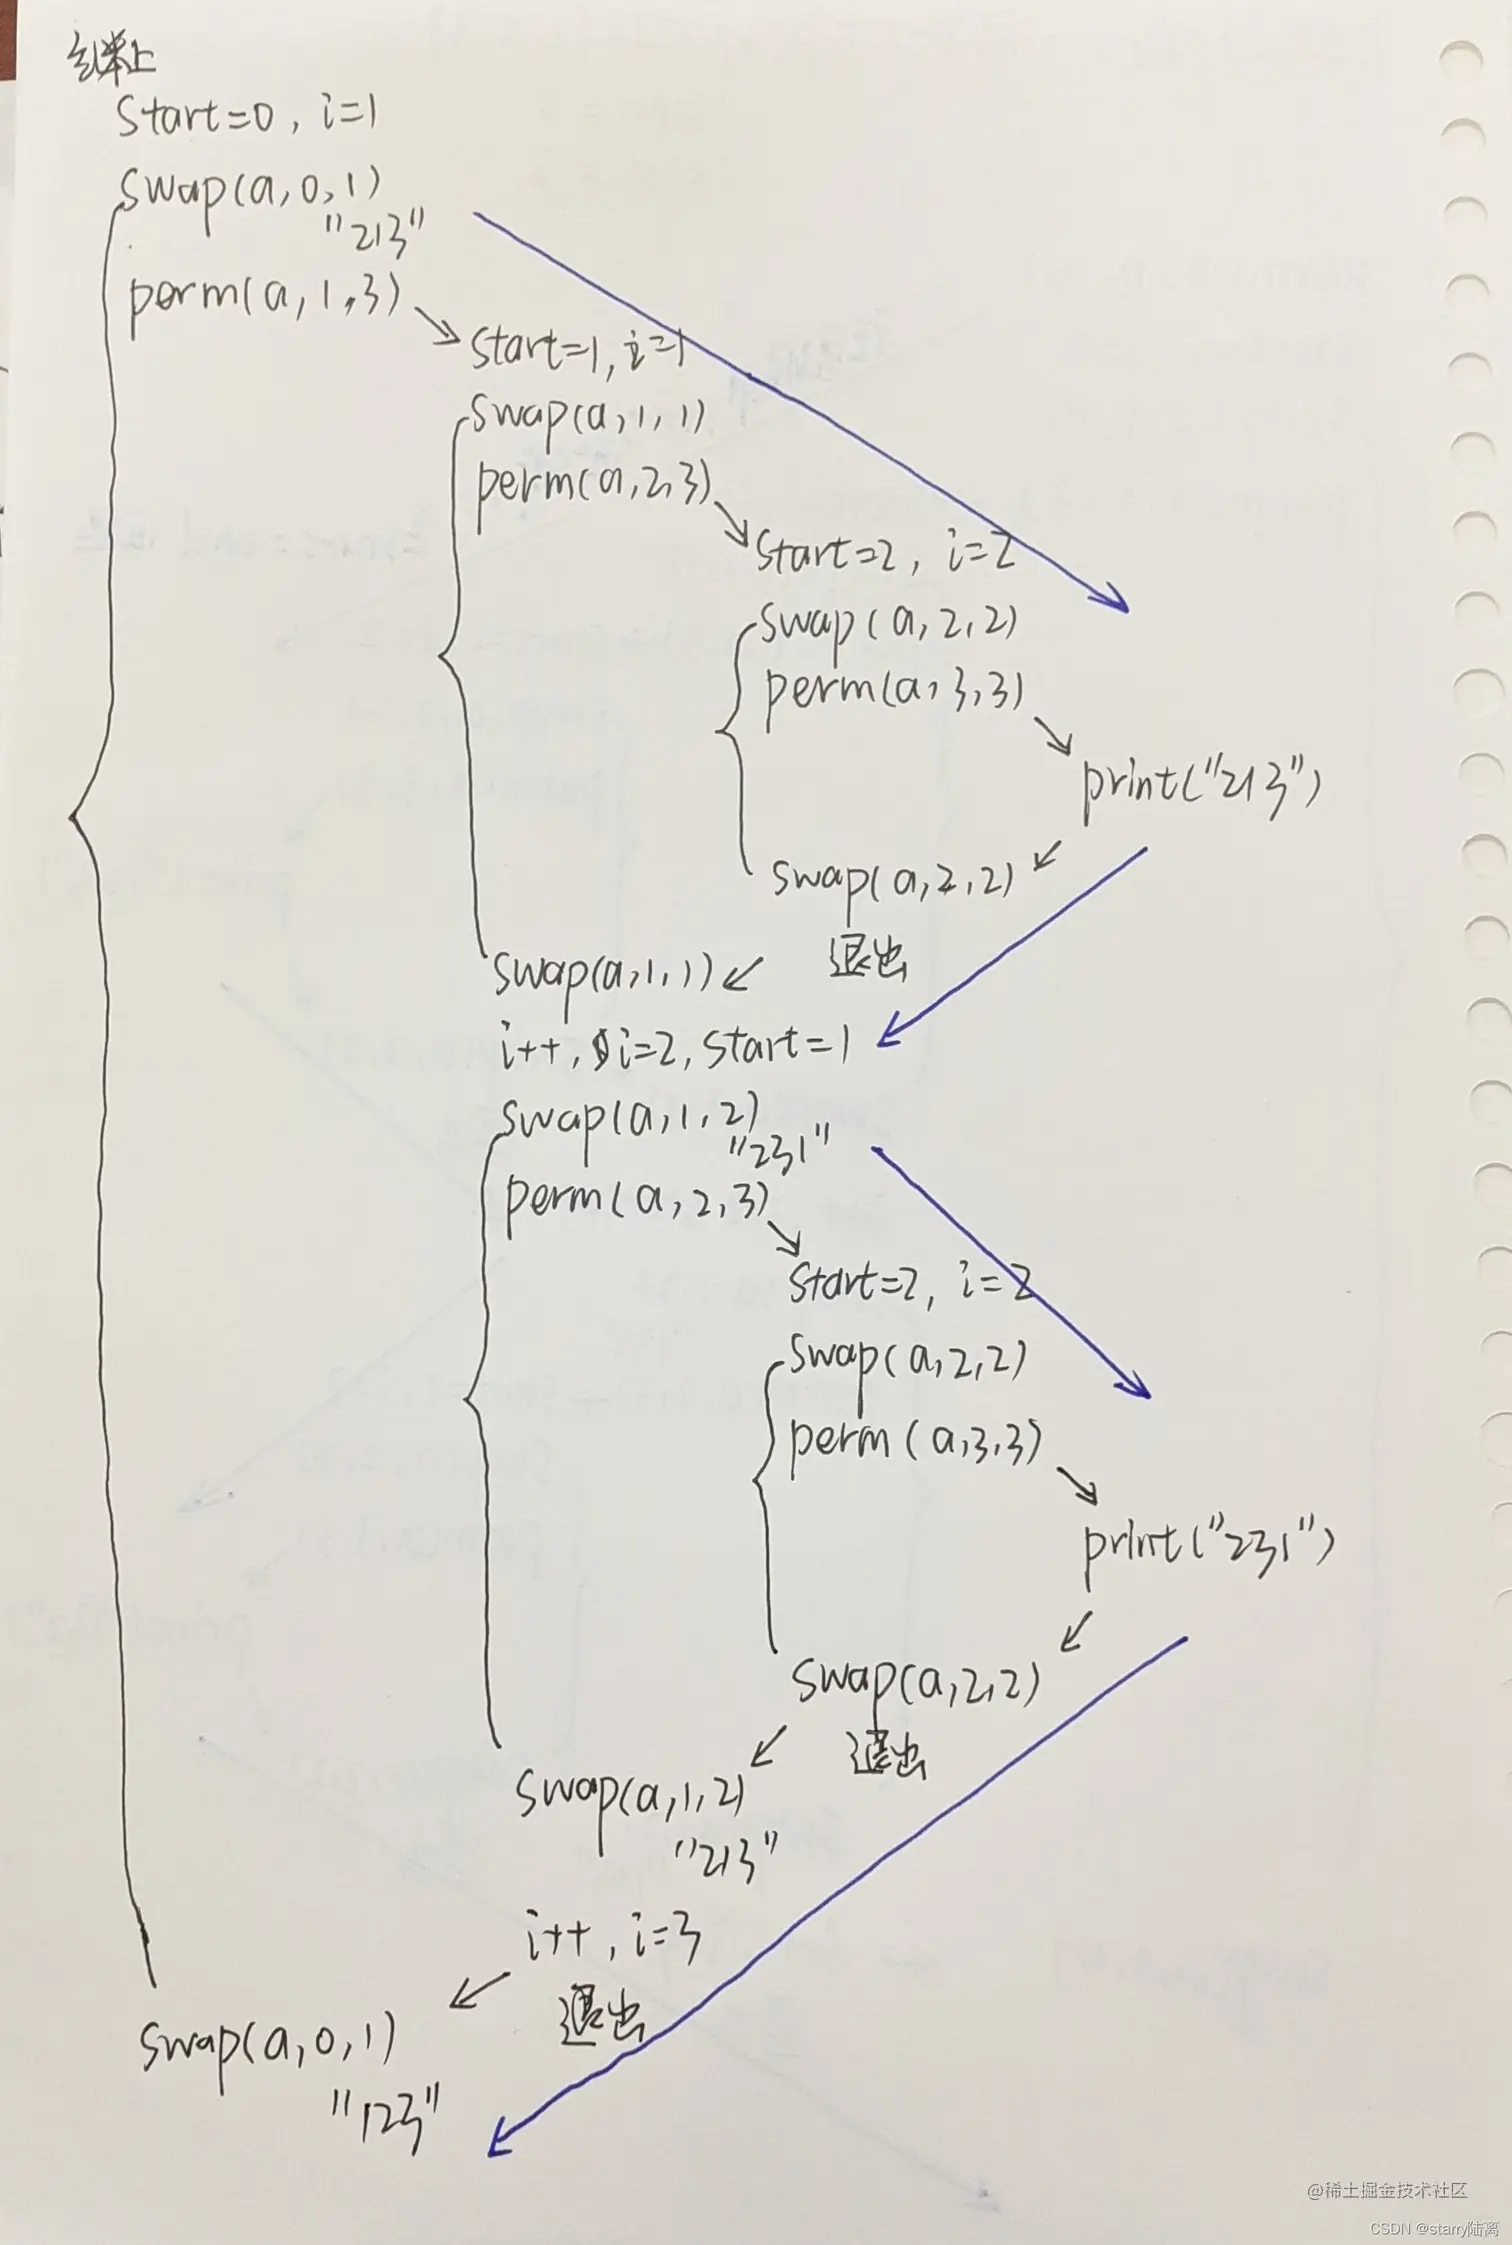 续上
Start=0, i=1
Swap(a,0,1)
"213"
perm(a,1,3)
Start=1, i=1
Swap(a,1,1)
perm(a,2,3)
Start=2, i=2
Swap(a,2,2)
perm(a,3,3)
print("213")
Swap(a,2,2)
退出
Swap(a,1,1)
i++, i=2, Start=1
Swap(a,1,2)
"231"
perm(a,2,3)
Start=2, i=2
Swap(a,2,2)
perm(a,3,3)
print("231")
Swap(a,2,2)
退出
Swap(a,1,2)
"213"
i++, i=3
退出
Swap(a,0,1)
"123"
@稀土掘金技术社区
CSDN @starry陆离